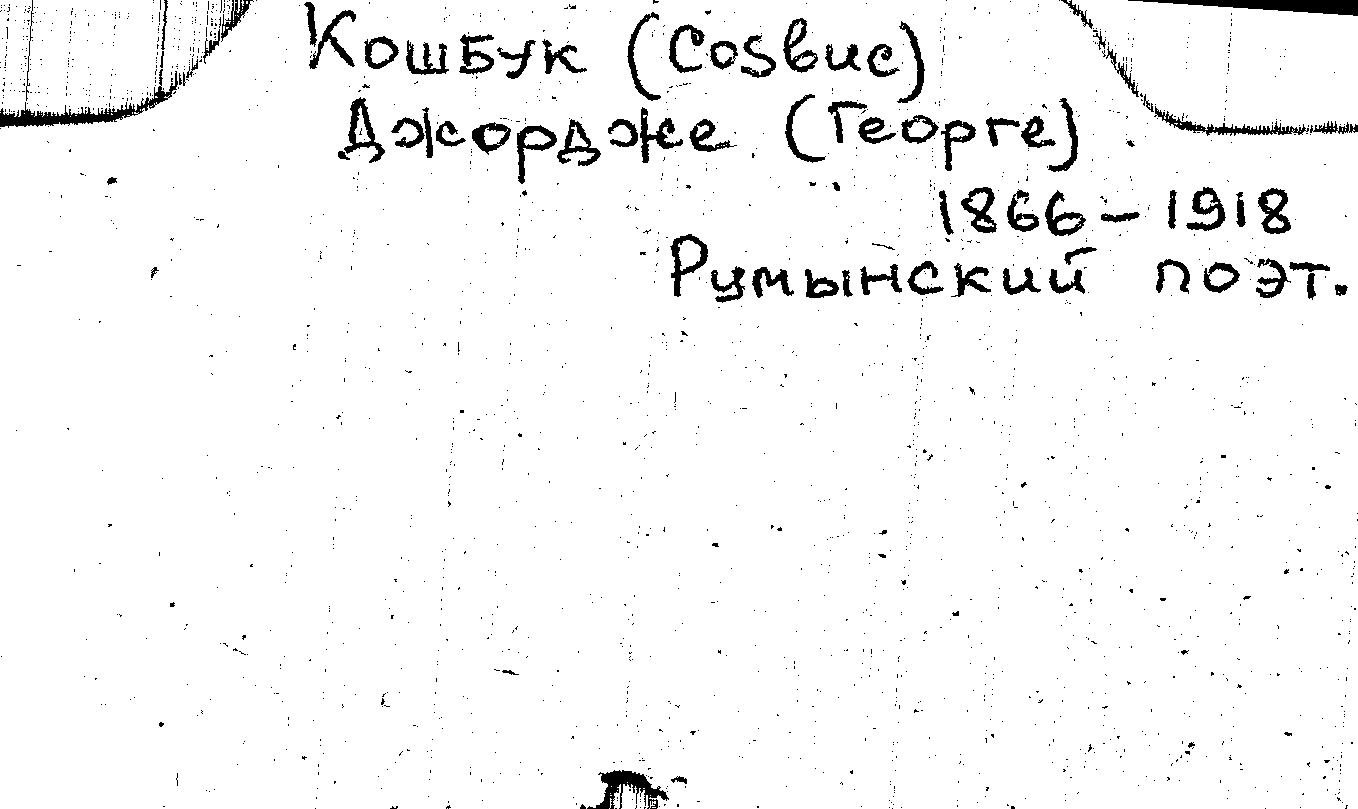 Кошбук (Cosbuc)
Джордже (Георге)
1866 – 1918
Румынский поэт.